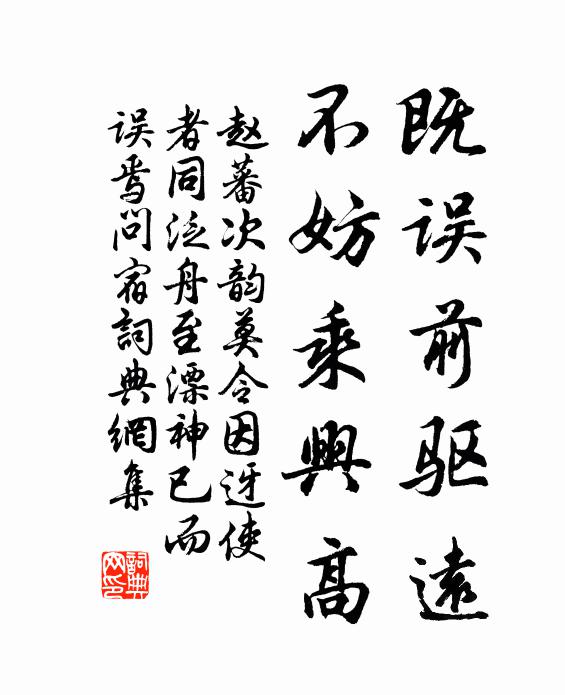 既误前驱遠
不妨乘興高
赵蕃次韵莫令因迓使
者同泛舟至漂神已而
误焉问宿詞典網集
詞典网印